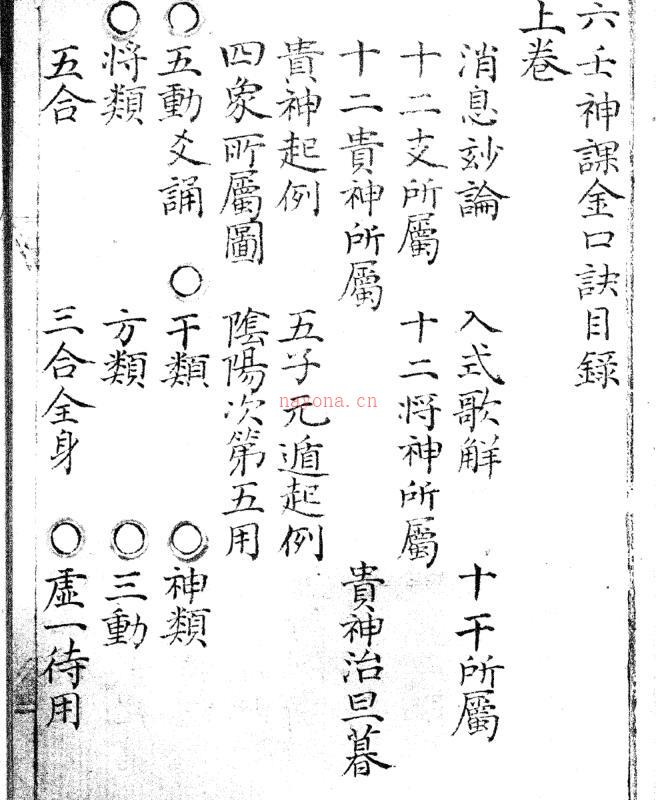 六壬神課金口訣目錄
上卷
消息玅論 入式歌解 十干所屬
十二支所屬 十二将神所屬
十二貴神所屬 貴神治旦暮
貴神起例 五子元遁起例
四象所屬圖 陰陽次第五用
○五動爻誦 ○干類 ○神類
○将類 方類 ○三動
五合 三合全身 ○虛一待用
nayona.cn